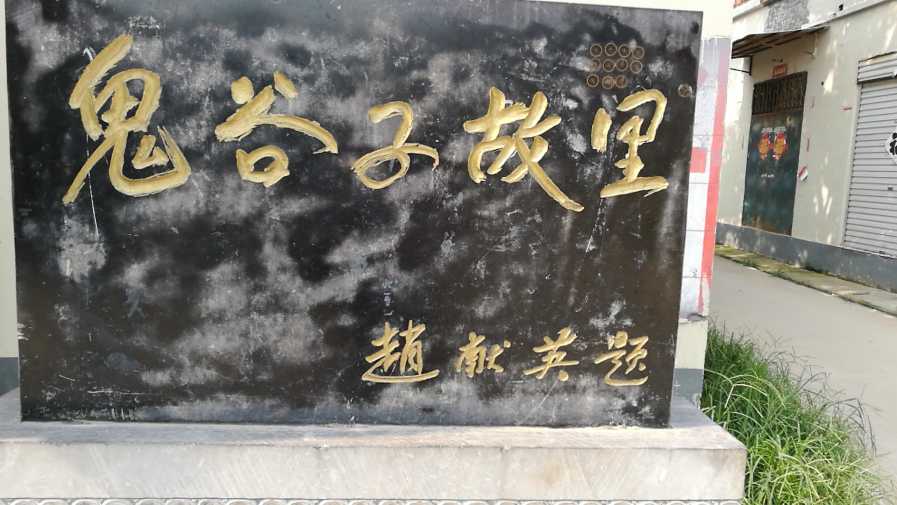 鬼谷子故里
趙献英题